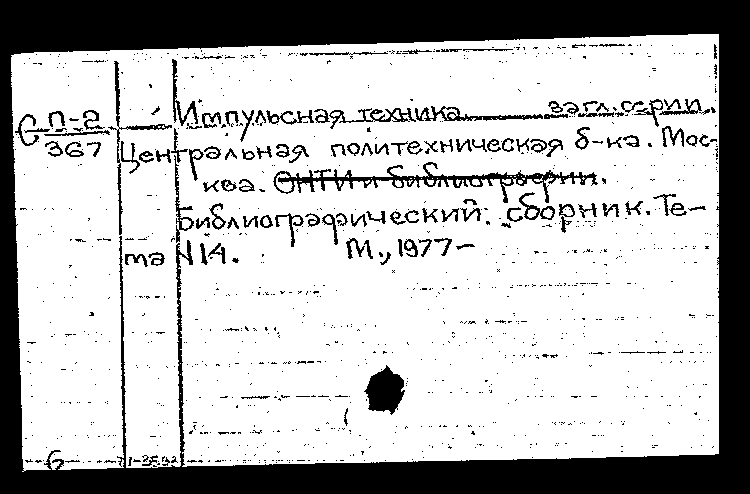 С П-2 Импульсная техника загл. серии.
367 Центральная политехническая б-ка. Мос-
ква. ОНТИ и библиогр. серии.
Библиографический сборник. Те-
ма N 14. М., 1977-
6